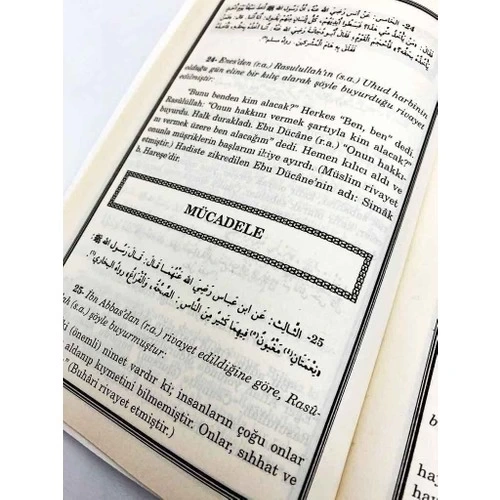 24- الخامس: عن أنس رضي الله عنه، أن رسول الله ﷺ
24- Enes'den (r.a.) Rasulullah'ın (s.a.) Uhud harbinin
olduğu gün eline bir kılıç alarak şöyle buyurduğu rivayet
edilmiştir:
"Bunu benden kim alacak?" Herkes "Ben, ben" dedi.
Rasûlüllah: "Onun hakkını vermek şartıyla kim alacak?"
buyurdu. Halk durakladı. Ebu Dücâne (r.a.) "Onun hakkı-
nı vermek üzere ben alacağım" dedi. Hemen kılıcı aldı ve
onunla müşriklerin başlarını ikiye ayırdı. (Müslim rivayet
etmiştir.) Hadiste zikredilen Ebu Dücâne'nin adı: Simâk
b. Hareşe'dir.
MÜCADELE
25- الثالث: عن ابن عباس رضي الله عنهما قال: قال رسول الله ﷺ:
«نعمتان(1) مغبون(2) فيهما كثير من الناس: الصحة، والفراغ» رواه البخاري(3).
25- İbn Abbas'dan (r.a.) rivayet edildiğine göre, Rasû-
(s.a.) şöyle buyurmuştur:
ki (önemli) nimet vardır ki; insanların çoğu onlar
aldanıp kıymetini bilmemiştir. Onlar, sıhhat ve
." (Buhâri rivayet etmiştir.)